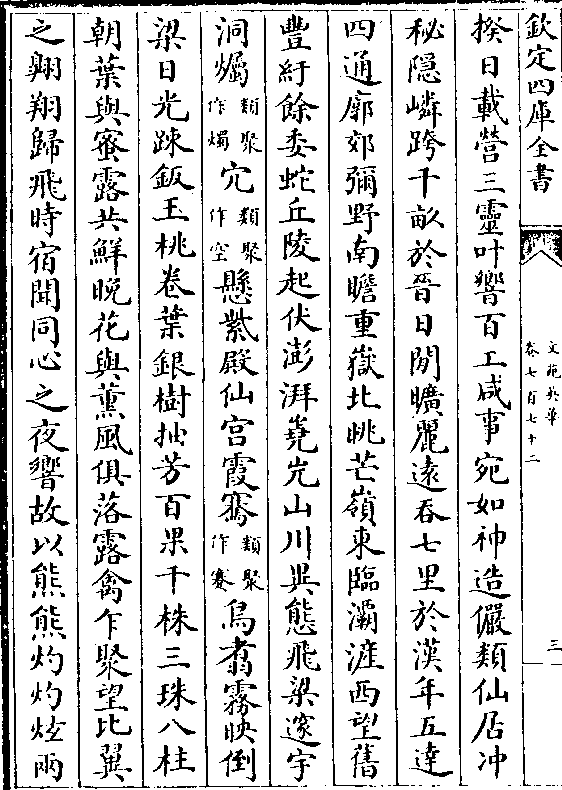 欽定四庫全書
文苑英華
卷七百七十二
三
揆日載營三靈叶響百工咸事宛如神造儼類仙居冲
秘隱嶙跨千畝於晉日閒曠麗遠吞七里於漢年五達
四通廓郊彌野南瞻重嶽北眺芒嶺東臨灞滻西望舊
豐紆餘委蛇丘陵起伏澎湃嶤屼山川異態飛梁邃宇
洞爥類聚作燭宂類聚作空懸紫殿仙宫霞騫類聚作褰鳥翥霧映倒
梁日光疎鈑玉桃卷葉銀樹抽芳百果千株三珠八柱
朝葉與蜜露共鮮晚花與薫風俱落露禽乍聚望比翼
之翺翔歸飛時宿聞同心之夜響故以熊熊灼灼炫兩